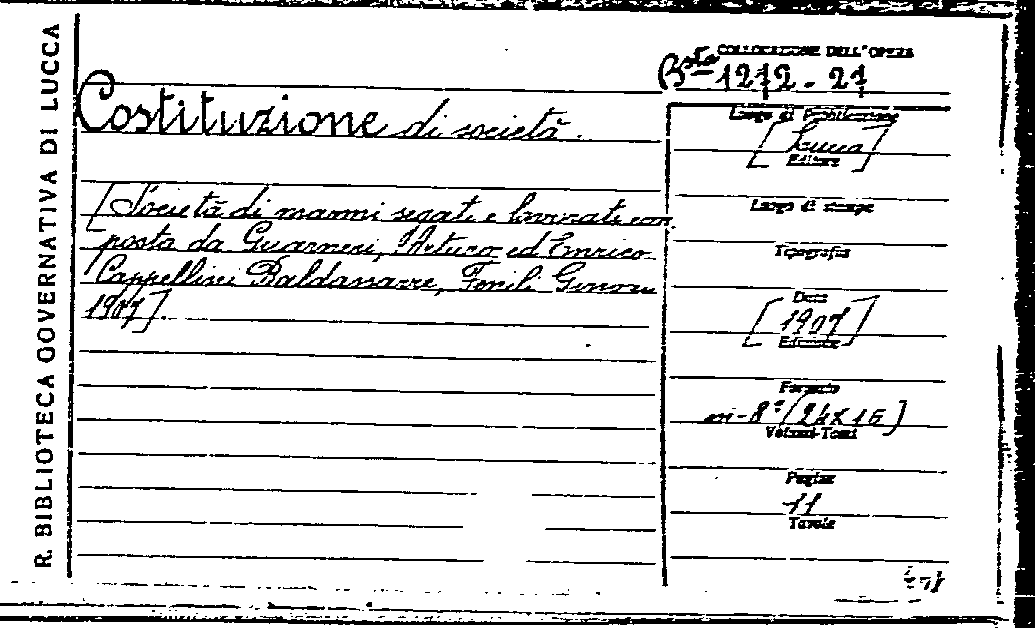 R. BIBLIOTECA GOVERNATIVA DI LUCCA
COLLOCAZIONE DELL'OPERA
Bsta 1272-21
Costituzione di società.
Luogo di Pubblicazione
[Lucca]
Editore
[Società di marmi segati e lavorati com
posta da Guarneri, Arturo ed Enrico
Cappellini Baldassarre,
1907].
Luogo di stampa
Tipografia
Data
[1907]
Edizione
Formato
in-8° [24x16]
Volumi-Tomi
Pagine
11
Tavole